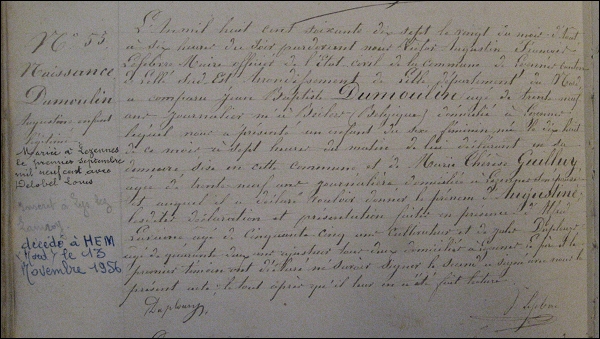 N° 55
Naissance
Dumoulin
Augustine enfant
légitime
Mariée à Lezennes
le premier septembre
mil neuf cent avec
Delobel Louis
décédée à HEM
(Nord) le 13
Novembre 1956
L'an mil huit cent soixante dix sept le vingt du mois d'Août
à six heures du soir pardevant nous Victor Augustin
Lefebvre Maire officier de l'État civil de la commune de Lezennes canton
de Lille Sud Est arrondissement de Lille département du Nord,
a comparu Jean Baptiste Dumoulin âgé de trente neuf
ans journalier né à (Belgique) domicilié à Lezennes
lequel nous a présenté un enfant du sexe féminin né le dix huit
de ce mois à sept heures du matin de lui déclarant en sa
demeure, sise en cette commune et de Marie Thérèse
âgée de trente neuf ans journalière, domiciliée à Lezennes son épouse
et auquel il a déclaré vouloir donner le prénom d'Augustine
lesdites déclaration et présentation faites en présence
âgé de cinquante cinq ans cultivateur et de Jules Deplanq
âgé de quarante deux ans tous deux domiciliés à Lezennes le père et le
premier témoin ont déclaré ne savoir signer le second a signé avec nous le
présent acte, le tout après qu'il leur en a été fait lecture.
V. Lefebvre